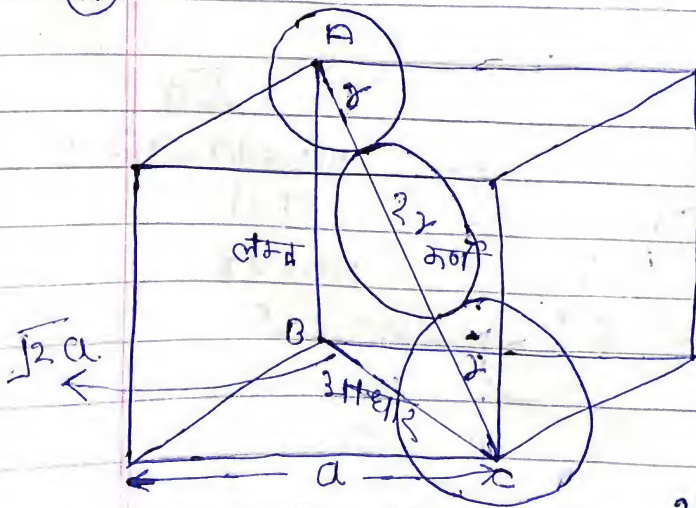 A
r
2r
लम्ब
कर्ण
B
√2 a
r
आधार
a
C